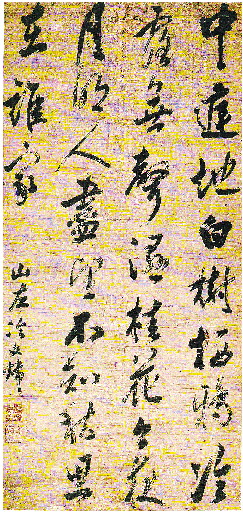 中庭地白樹棲鴉冷
露無聲濕桂花今夜
月明人盡望不知秋思
在誰家
山左冷文煒